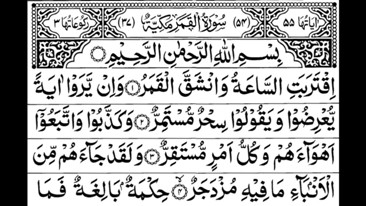 اٰيَاتُهَا ٥٥ (٥٤) سُوْرَةُ الْقَمَرِ مَكِّيَّةٌ (٣٧) رُكُوْعَاتُهَا ٣
بِسْمِ اللّٰهِ الرَّحْمٰنِ الرَّحِيْمِ
اِقْتَرَبَتِ السَّاعَةُ وَانْشَقَّ الْقَمَرُ ① وَاِنْ يَّرَوْا اٰيَةً
يُّعْرِضُوْا وَيَقُوْلُوْا سِحْرٌ مُّسْتَمِرٌّ ② وَكَذَّبُوْا وَاتَّبَعُوْٓا
اَهْوَآءَهُمْ وَكُلُّ اَمْرٍ مُّسْتَقِرٌّ ③ وَلَقَدْ جَآءَهُمْ مِّنَ
الْاَنْۢبَآءِ مَا فِيْهِ مُزْدَجَرٌ ④ حِكْمَةٌۢ بَالِغَةٌ فَمَا